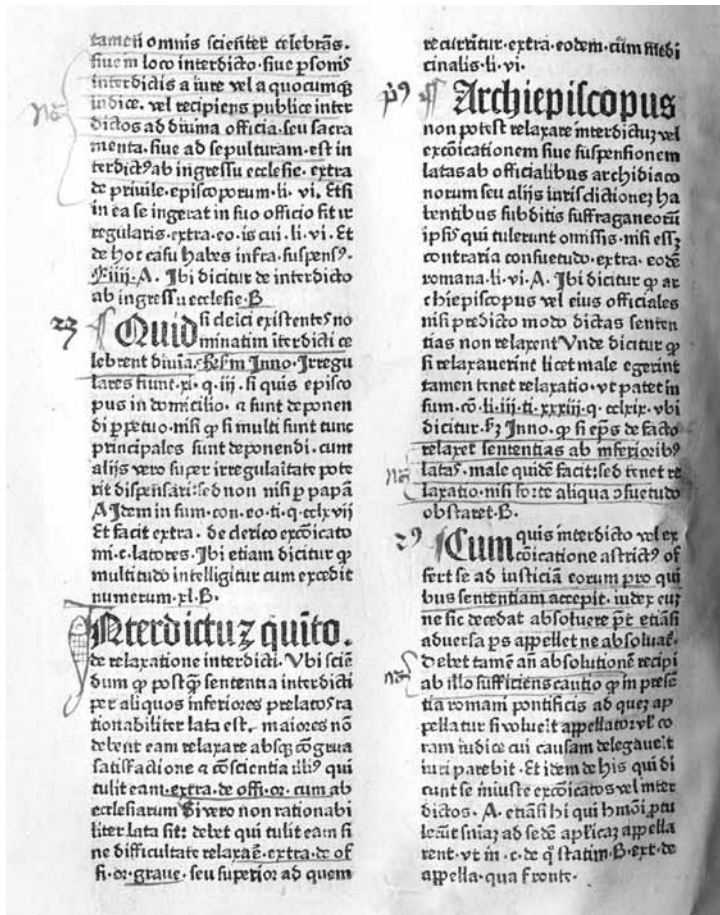 tamen omnis scienter celebrās.
siue in loco interdicto. siue psonis
interdictis a iure vel a quocumq
iudice. vel recipiens publice inter
dictos ad diuina officia. seu sacra
menta. siue ad sepulturam. est in
terdictꝰ ab ingressu ecclesie. extra
de priuile. episcoporum. li. vi. Etsi
in ea se ingerat in suo officio fit ir
regularis. extra. eo. is cui. li. vi. Et
de hoc casu habes infra. suspensꝰ.
iiij. A. Ibi dicitur de interdicto
ab ingressu ecclesie. B
Quid si cleici existentes no
minatim īterdicti ce
lebrent diuīa. Rn̄. Inno. Irregu
lares fiunt. xi. q. iii. si quis episco
pus in domicilio. ⁊ sunt deponen
di ppetuo. nisi ꝙ si multi sunt tunc
principales sunt deponendi. cum
alijs vero super irregulaītate pote
rit dispensari: sed non nisi p papā
A Idem in sum. con. eo. ti. q. cclxvij
Et facit extra. de clerico excōicato
mi. c. latores. Ibi etiam dicitur ꝙ
multitudo intelligitur cum excedit
numerum. xl. B.
Nterdictuꝫ quīto.
de relaxatione interdicti. Vbi sciē
dum ꝙ postꝙ̄ sententia interdicti
per aliquos inferiores prelatos ra
tionabiliter lata est. maiores nō
debent eam relaxare absqꝫ cōgrua
satisfactione ⁊ cōscientia illiꝰ qui
tulit eam. extra. de offi. or. cum ab
ecclesiarum Si vero non rationabi
liter lata sit: debet qui tulit eam si
ne difficultate relaxaē. extra. de of
fi. or. graue. seu superior ad quem
recurritur. extra. eodem. cūm medi
cinalis. li. vi.
Archiepiscopus
non potest relaxare interdictuꝫ vel
excōicationem siue suspensionem
latas ab officialibus archidiaco
norum seu alijs iurisdictioneꝫ ha
bentibus subditis suffraganeoꝝ
ipsiꝰ qui tulerunt omissis. nisi essꝫ
contraria consuetudo. extra. eodē
romana. li. vi. A. Ibi dicitur ꝙ ar
chiepiscopus vel eius officiales
nisi predicto modo dictas senten
tias non relaxent Vnde dicitur ꝙ
si relaxauerint licet male egerint
tamen tenet relaxatio. vt patet in
sum. cō. li. iii. ti. xxxiii. q. cclxix. vbi
dicitur. fꝫ Inno. ꝙ si ep̄s de facto
relaxet sententias ab inferioribꝰ
latas. male quidē facit: sed tenet re
laxatio. nisi forte aliqua ↄsuetudo
obstaret. B.
Cum quis interdicto vel ex
cōicatione astrictꝰ of
fert se ad iusticiā eorum pro qui
bus sententiam accepit. iudex euꝫ
ne sic decedat absoluere pt̄ etiāsi
aduersa ps appellet ne absoluat̄.
Debet tamē añ absolutionē recipi
ab illo sufficiens cautio ꝙ in presē
tia romani pontificis ad queꝫ ap
pellatur si voluēit appellator vł co
ram iudice cui causam delegauēit
iuri parebit. Et idem de his qui di
cunt se iniuste excōicatos vel inter
dictos. A. etiāsi hi qui hmōi ptu
leūt sniaꝫ ad sedē aplicaꝫ appella
rent. vt in. c. de q̄ statim. B. ext. de
appella. qua fronte.